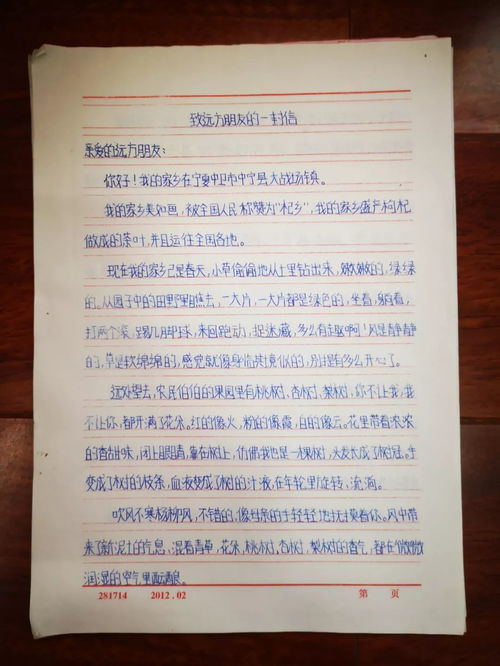 致远方朋友的一封信
亲爱的远方朋友：
你好！我的家乡在宁夏中卫市中宁县大战场镇。
我的家乡美如画，被全国人民称赞为"杞乡"，我的家乡盛产枸杞
做成的茶叶，并且运往全国各地。
现在我的家乡已是春天，小草偷偷地从土里钻出来，嫩嫩的，绿绿
的。从园子中的田野里瞧去，一大片，一大片都是绿色的，坐着，躺着，
打两个滚，踢几脚球，来回跑动，捉迷藏，多么有趣啊！风是静静
的，草是软绵绵的，感觉就像身临其境似的，别提有多么开心了。
远处望去，农民伯伯的果园里有桃树，杏树，梨树，你不让我，我
不让你，都开满了花朵。红的像火，粉的像霞，白的像云。花里带着浓浓
的香甜味，闭上眼睛，靠在树上，仿佛我也是一棵树，头发长成了树冠。手
变成了树的枝条，血液变成了树的汁液，在年轮里旋转、流淌。
吹风不寒杨柳风，不错的，像母亲的手轻轻地抚摸着你。风中带
来了新泥土的气息，混着青草，花朵，桃树，杏树，梨树的香气，都在微微
润湿的空气里酝酿。
281714 2012.02 第 页